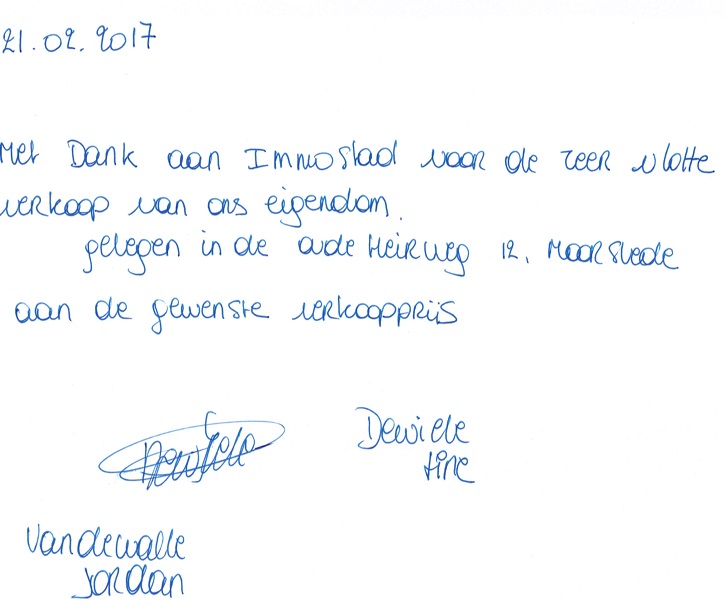 21.02.2017
Met Dank aan Immostad voor de zeer vlotte
verkoop van ons eigendom.
gelegen in de oude Heirweg 12, Moorslede
aan de gewenste verkoopprijs
Dewiele
tine
Vandewalle
Jordan